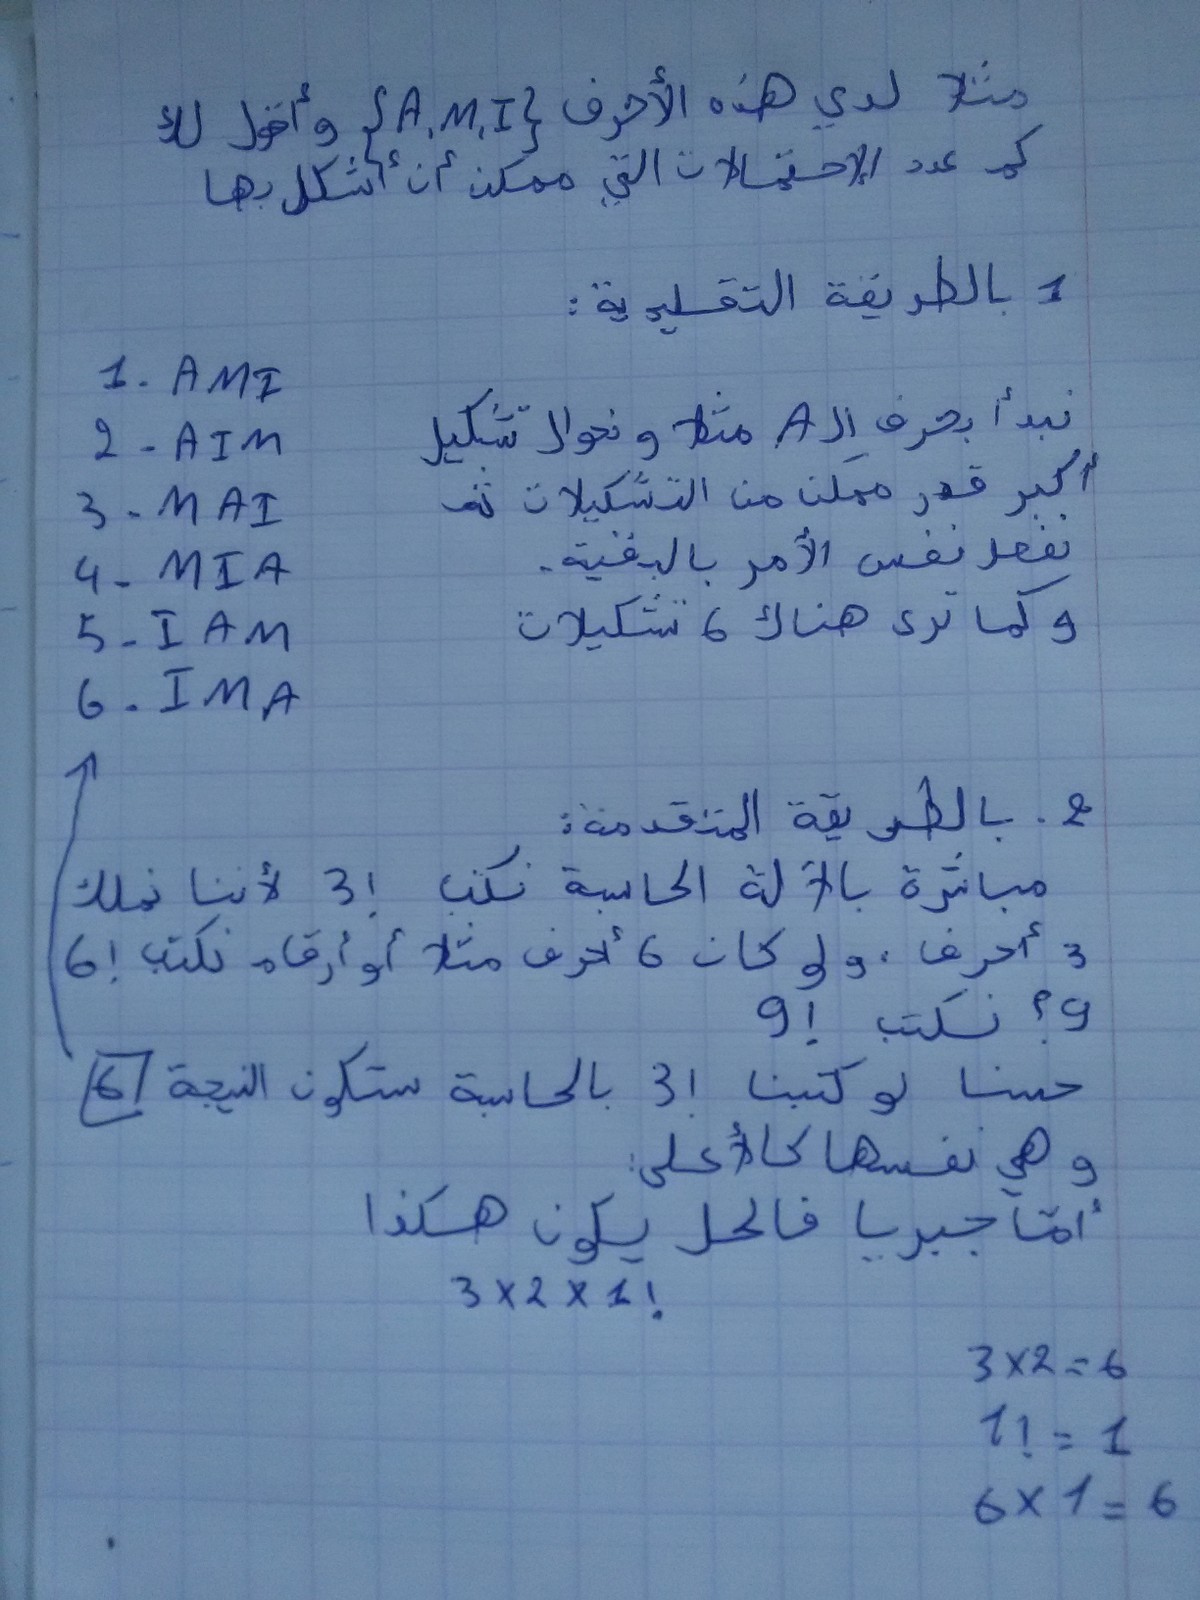 مثلا لدي هذه الأحرف {A,M,I} وأقول لك
كم عدد الإحتمالات التي ممكن أن أشكل بها
1 بالطريقة التقليدية:
نبدأ بحرف الـ A مثلا و نحوال تشكيل
أكبر قدر ممكن من التشكيلات ثم
نفعل نفس الأمر بالبقية.
و كما ترى هناك 6 تشكيلات
1. AMI
2 - AIM
3 - MAI
4 - MIA
5 - IAM
6 - IMA
2. بالطريقة المتقدمة:
مباشرة بالآلة الحاسبة نكتب !3 لأننا نملك
3 أحرف، ولو كان 6 أحرف مثلا أو أرقام نكتب !6
9؟ نكتب !9
حسنا لو كتبنا !3 بالحاسبة ستكون النيجة 6
و هي نفسها كالأعلى:
أمّا جبريا فالحل يكون هكذا
3 x 2 x 1!
3 x 2 = 6
1! = 1
6 x 1 = 6